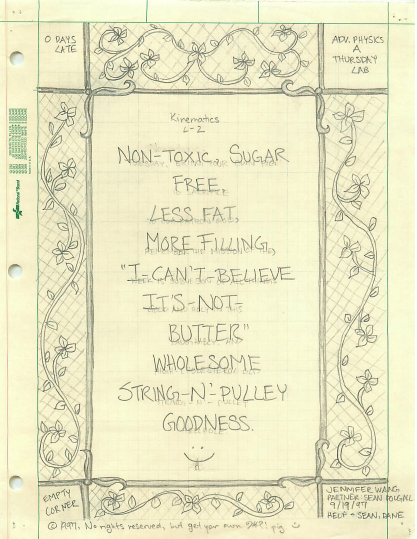 0 DAYS
LATE
ADV. PHYSICS
A
THURSDAY
LAB
Kinematics
L-2
NON-TOXIC, SUGAR
FREE,
LESS FAT,
MORE FILLING,
"I-CAN'T-BELIEVE
IT'S-NOT-
BUTTER"
WHOLESOME
STRING-N'-PULLEY
GOODNESS.
EMPTY
CORNER
JENNIFER WANG
PARTNER: SEAN
9/19/97
HELP - SEAN, DANE
© 1997. No rights reserved, but get your own pig